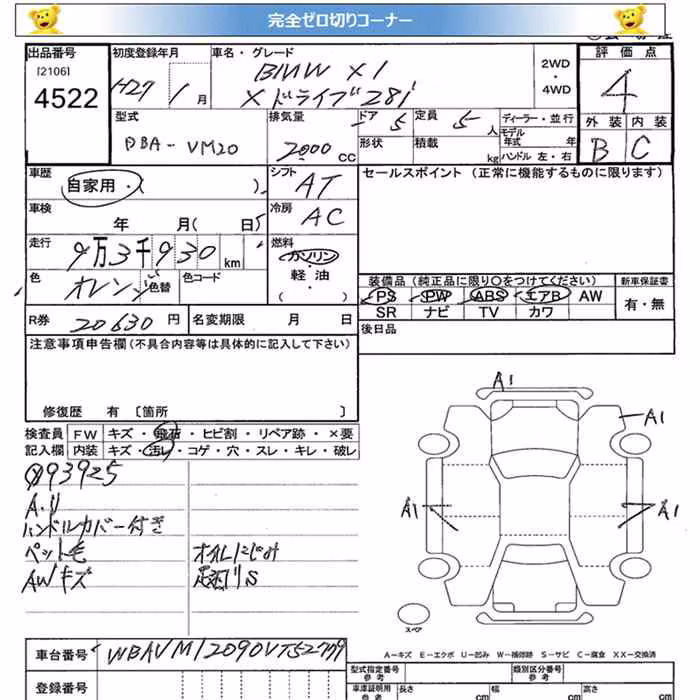 完全ゼロ切りコーナー
出品番号 初度登録年月 車名・グレード 2WD・4WD 評価点
[2106] 4522 H27 1月 BMW X1 4
Xドライブ28i
型式 排気量 ドア 5 定員 5人 ディーラー・並行 外装 内装
DBA-VM20 2000CC 形状 積載 kg モデル年式 年 B C
ハンドル 左・右
車歴 シフト セールスポイント (正常に機能するものに限ります)
自家用・( ) AT
車検 冷房
年 月( 日) AC
走行 燃料
9万3千930km ガソリン・軽油
色 色替 色コード ( )
オレンジ
装備品(純正品に限り○をつけてください) 新車保証書
PS PW ABS エアB AW 有・無
SR ナビ TV カワ
R券 20630円 名変期限 月 日 後日品
注意事項申告欄(不具合内容等は具体的に記入して下さい)
修復歴 有〔箇所 〕
検査員 FW キズ・飛石・ヒビ割・リペア跡・×要
記入欄 内装 キズ・汚レ・コゲ・穴・スレ・キレ・破レ
93925
A・リ
ハンドルカバー付き
ペット毛 オイルにじみ
AWキズ S
A1
A1
A1
A1
スペア
A-キズ E-エクボ U-凹み W-補修跡 S-サビ C-腐食 XX-交換済
車台番号
登録番号
型式指定番号 参考 類別区分番号 参考
車庫証明用 参考 長さ cm 幅 cm 高さ cm